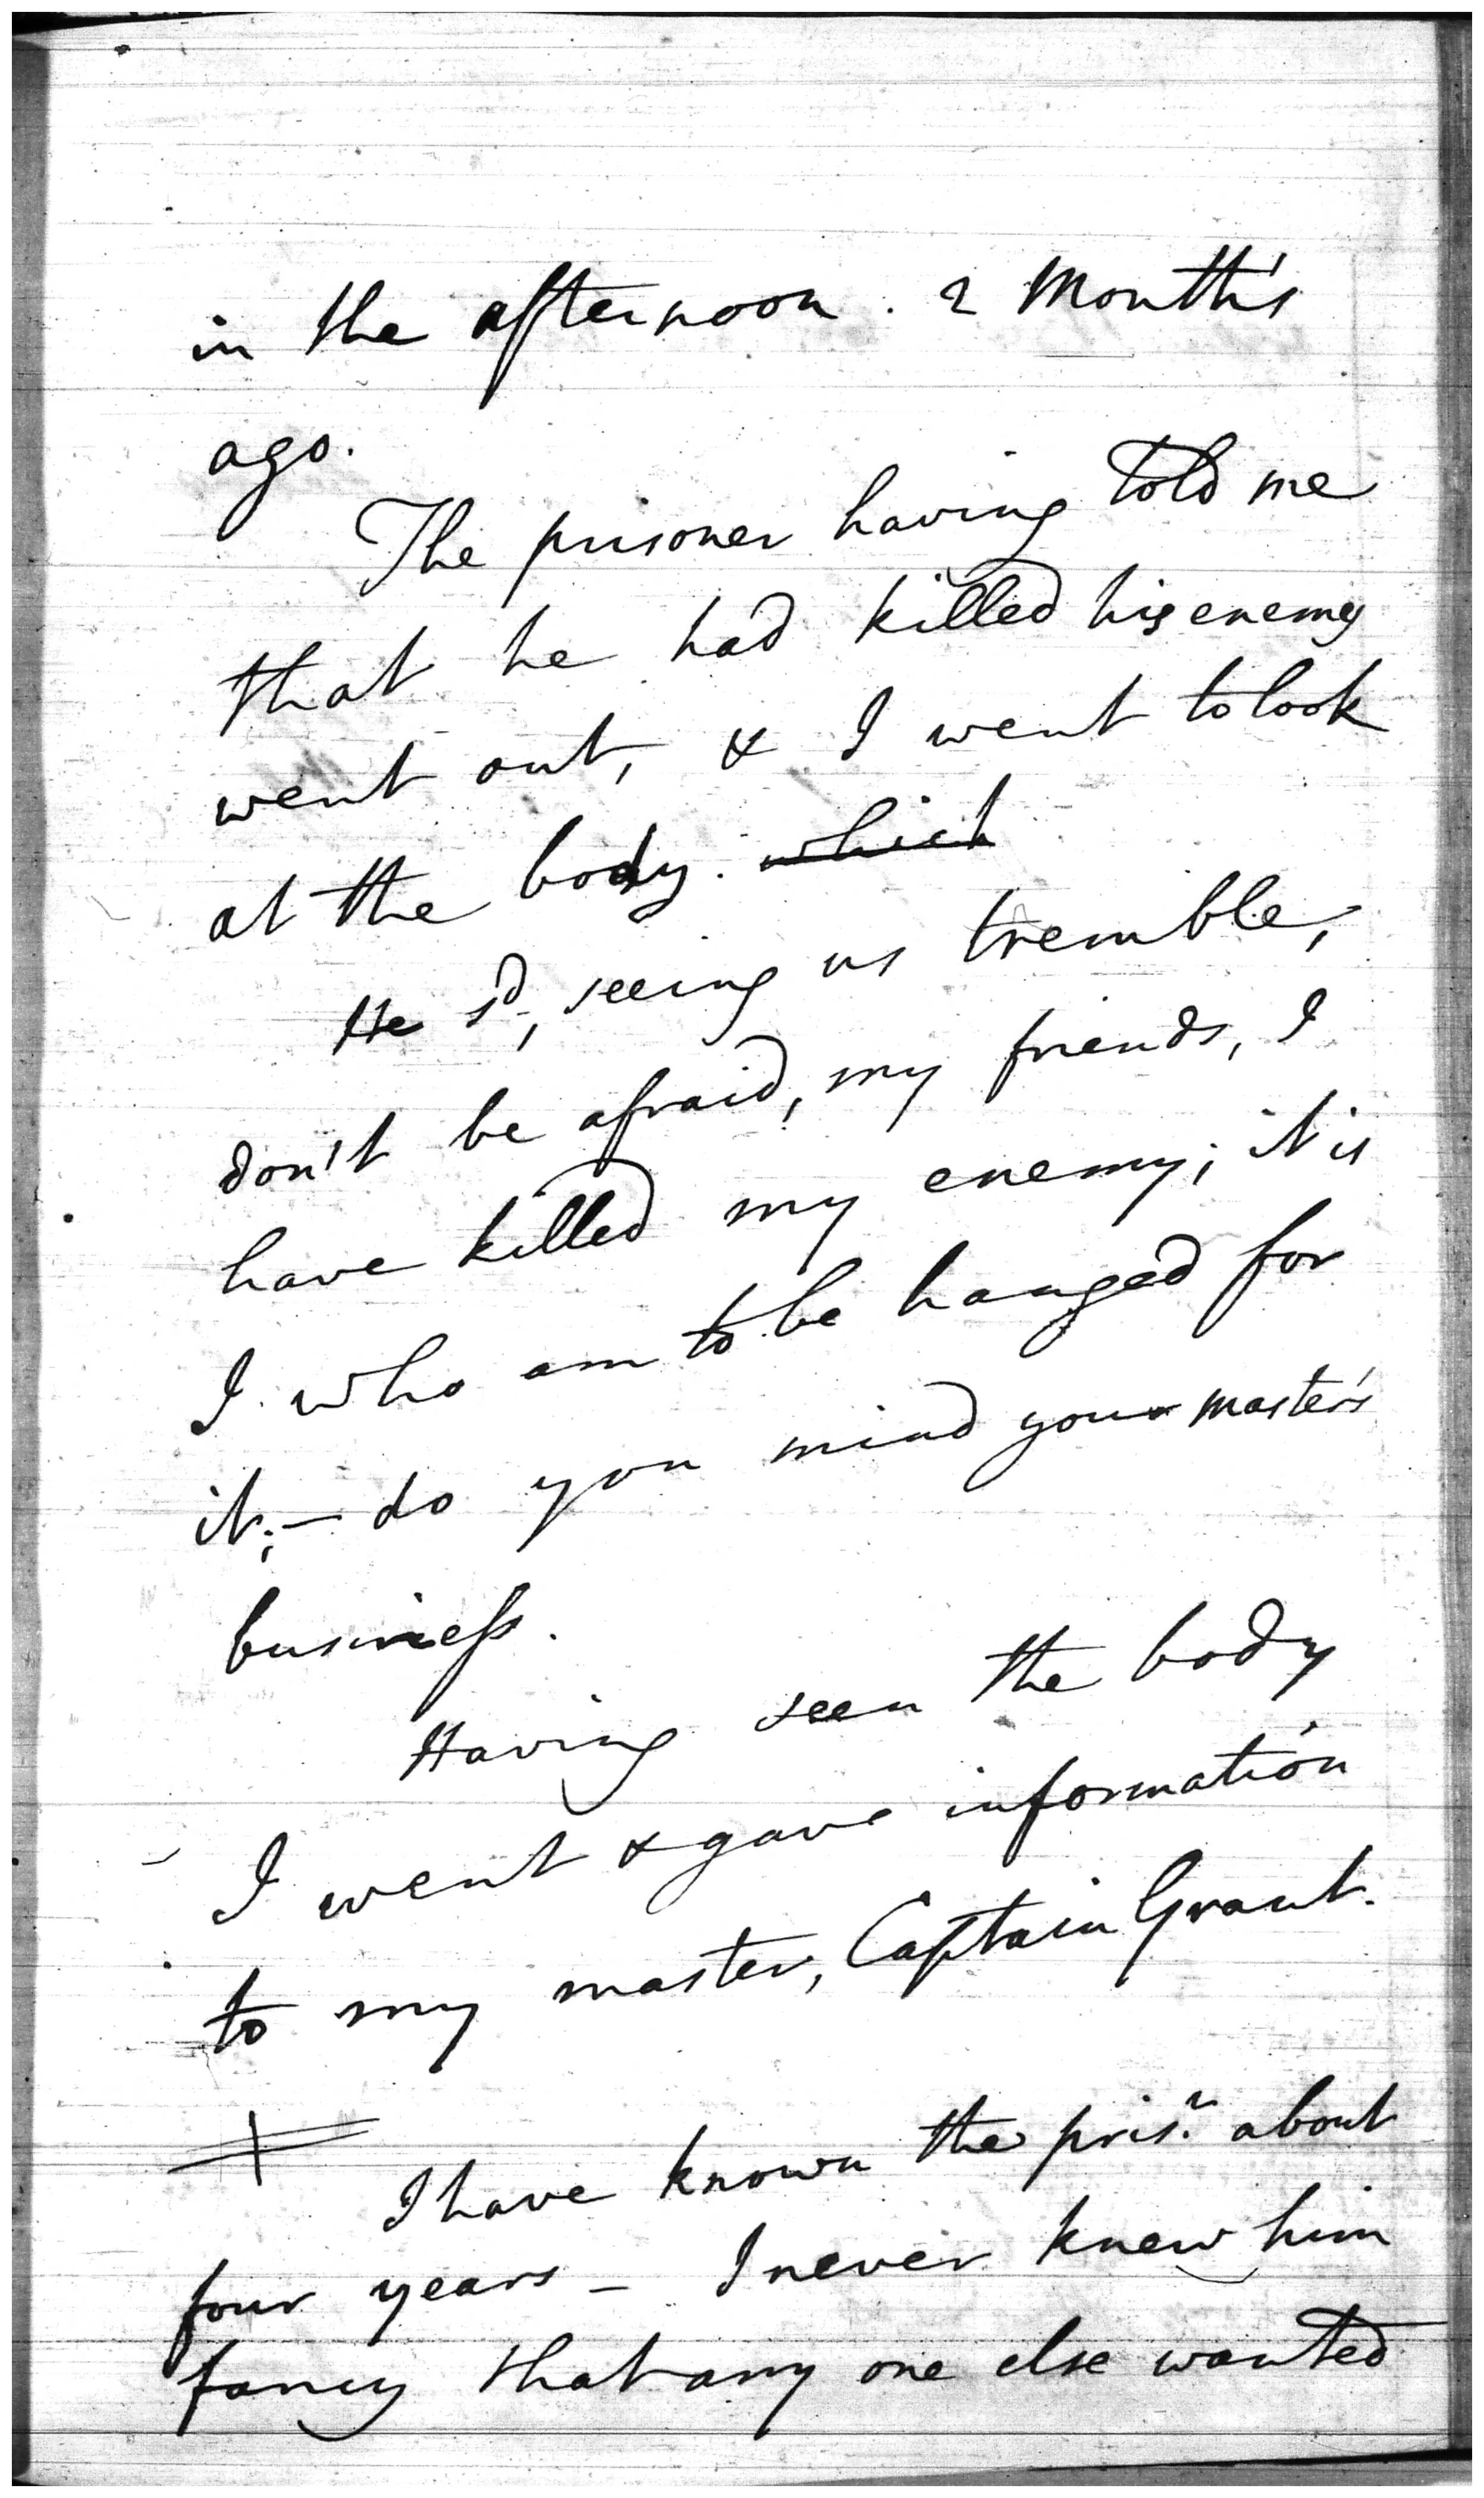 in the afternoon. 2 Month's
ago.
The prisoner having told me
that he had killed his enemy
went out, & I went to look
at the body. which
He sd, seeing us tremble,
don't be afraid, my friends, I
have killed my enemy; it is
I who am to be hanged for
it; — do you mind your master's
business.
Having seen the body
I went & gave information
to my master, Captain Grant.
I have known the prisr. about
four years — I never knew him
fancy that any one else wanted